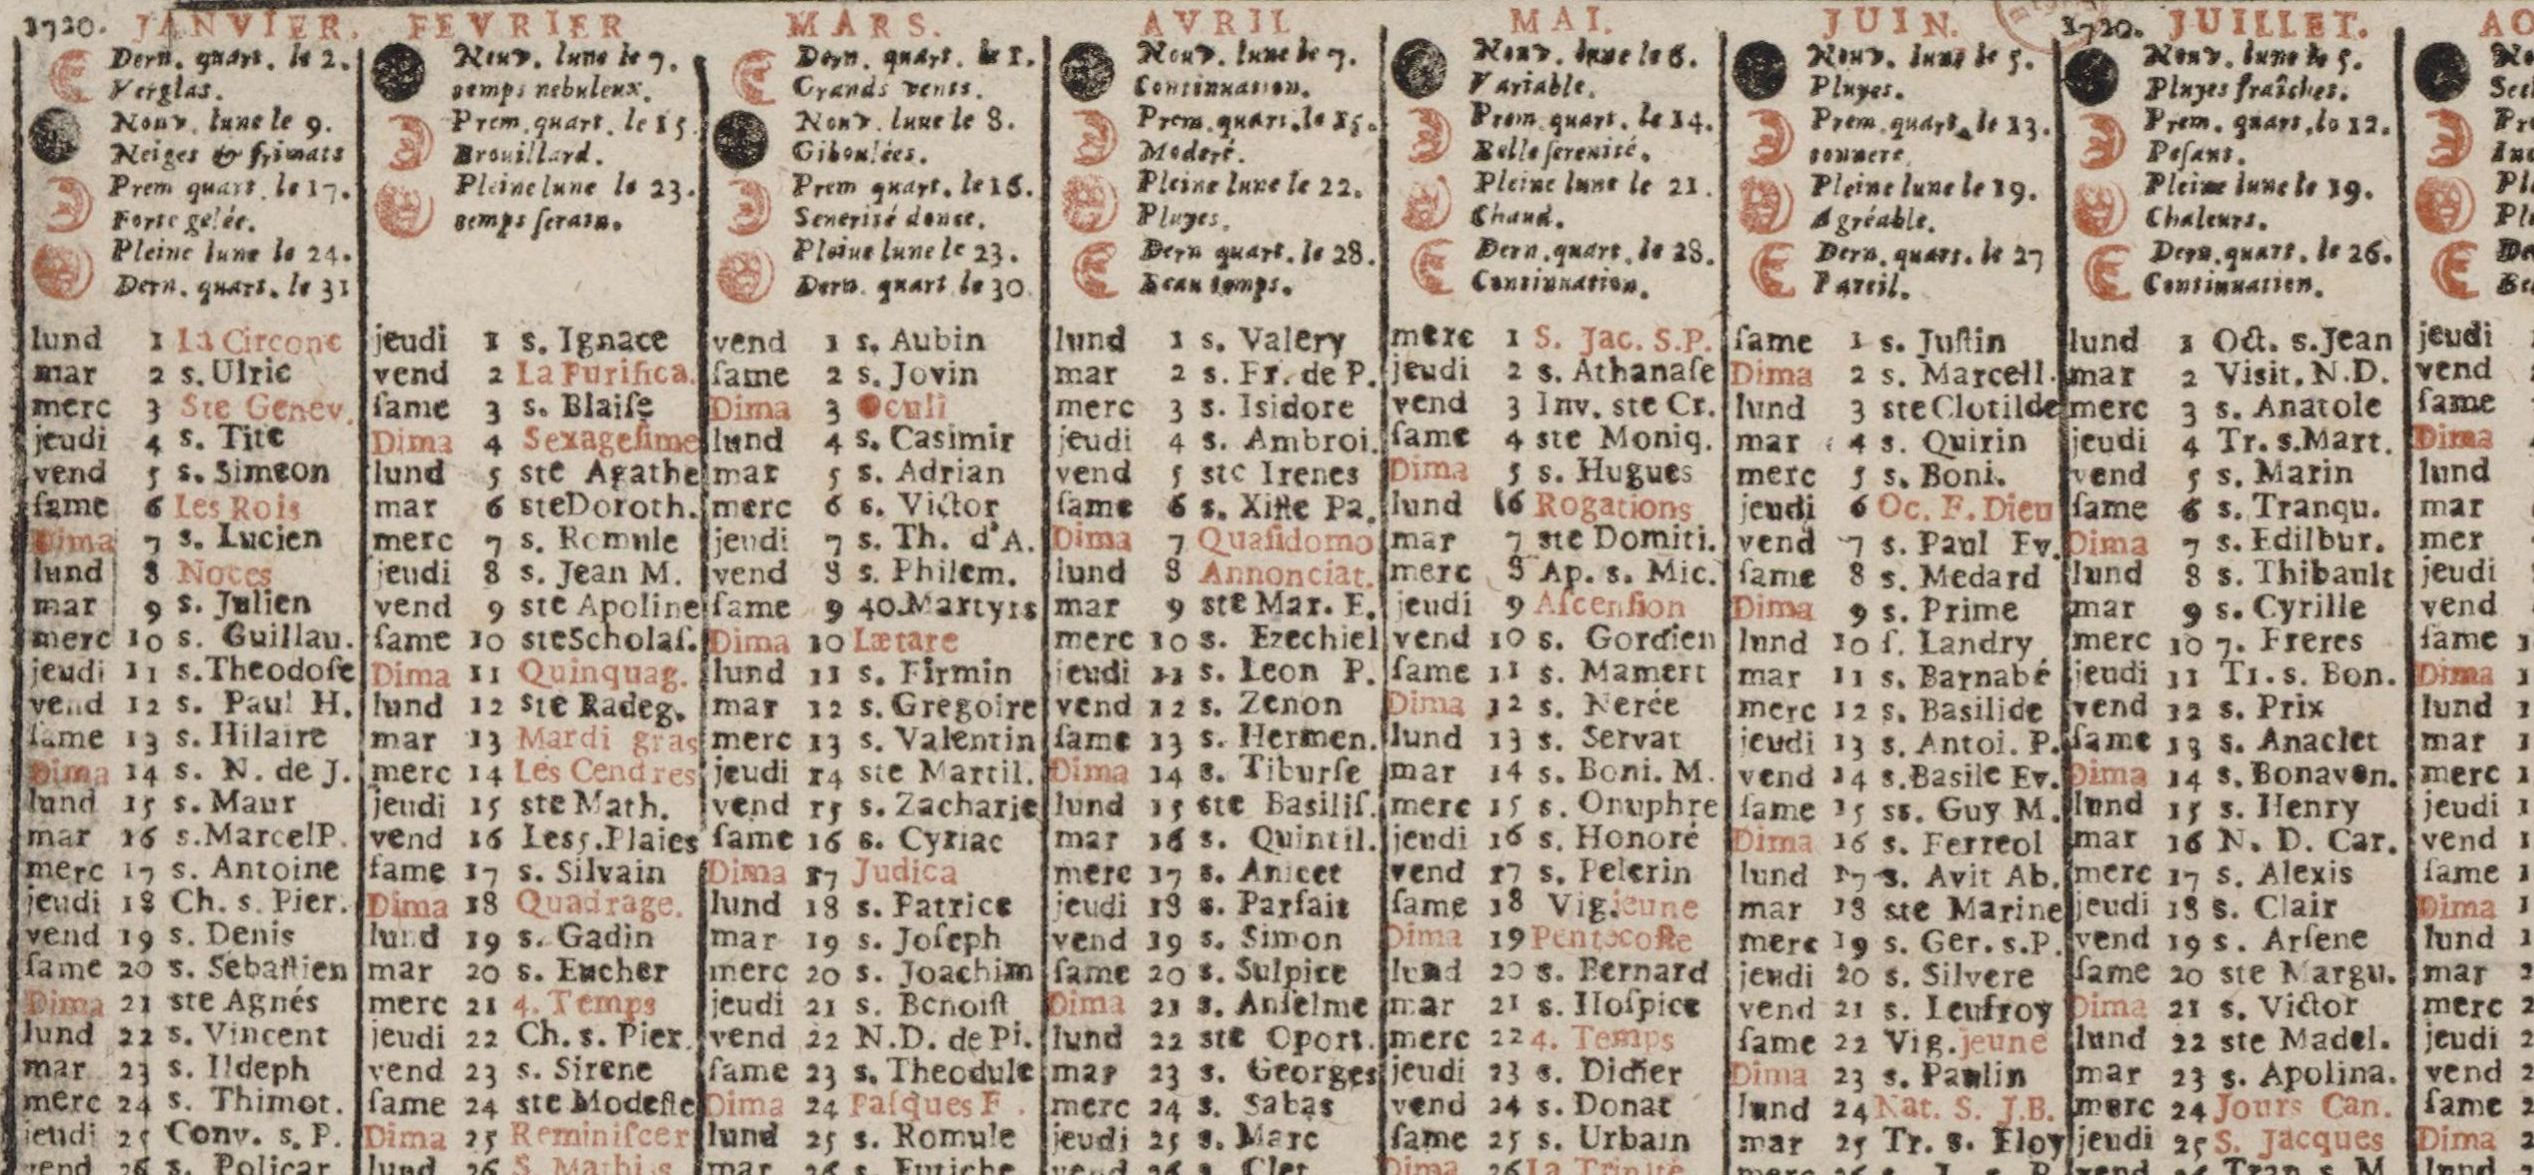 1720. JANVIER.
Dern. quart. le 2.
Verglas.
Nouv. lune le 9.
Neiges & frimats
Prem quart. le 17.
Forte gelée.
Pleine lune le 24.
Dern. quart. le 31
lund 1 La Circonc
mar 2 s. Ulric
merc 3 Ste Genev.
jeudi 4 s. Tite
vend 5 s. Simeon
ſame 6 Les Rois
Dima 7 s. Lucien
lund 8 Noces
mar 9 s. Julien
merc 10 s. Guillau.
jeudi 11 s. Theodoſe
vend 12 s. Paul H.
ſame 13 s. Hilaire
Dima 14 s. N. de J.
lund 15 s. Maur
mar 16 s. Marcel P.
merc 17 s. Antoine
jeudi 18 Ch. s. Pier.
vend 19 s. Denis
ſame 20 s. Sebaſtien
Dima 21 ste Agnés
lund 22 s. Vincent
mar 23 s. Ildeph
merc 24 s. Thimot.
jeudi 25 Conv. s. P.
vend 26 s. Policar
FEVRIER
Nouv. lune le 7.
temps nebuleux.
Prem. quart. le 15.
Brouillard.
Pleine lune le 23.
temps ſerain.
jeudi 1 s. Ignace
vend 2 La Purifica.
ſame 3 s. Blaiſe
Dima 4 Sexageſime
lund 5 ste Agathe
mar 6 ste Doroth.
merc 7 s. Romule
jeudi 8 s. Jean M.
vend 9 ste Apoline
ſame 10 ste Scholaſ.
Dima 11 Quinquag.
lund 12 ste Radeg.
mar 13 Mardi gras
merc 14 Les Cendres
jeudi 15 ste Math.
vend 16 Les 5. Plaies
ſame 17 s. Silvain
Dima 18 Quadrage.
lund 19 s. Gadin
mar 20 s. Eucher
merc 21 4. Temps
jeudi 22 Ch. s. Pier.
vend 23 s. Sirene
ſame 24 ste Modeſte
Dima 25 Reminiſcer
lund 26 S. Mathias
MARS.
Dern. quart. le 1.
Grands vents.
Nouv. lune le 8.
Giboulées.
Prem quart. le 16.
Senerité douce.
Pleine lune le 23.
Dern. quart le 30.
vend 1 s. Aubin
ſame 2 s. Jovin
Dima 3 Oculi
lund 4 s. Casimir
mar 5 s. Adrian
merc 6 s. Victor
jeudi 7 s. Th. d'A.
vend 8 s. Philem.
ſame 9 40. Martyrs
Dima 10 Lætare
lund 11 s. Firmin
mar 12 s. Gregoire
merc 13 s. Valentin
jeudi 14 ste Martil.
vend 15 s. Zacharie
ſame 16 s. Cyriac
Dima 17 Judica
lund 18 s. Patrice
mar 19 s. Joſeph
merc 20 s. Joachim
jeudi 21 s. Benoiſt
vend 22 N.D. de Pi.
ſame 23 s. Theodule
Dima 24 Paſques F.
lund 25 s. Romule
mar 26 s. Eutiche
AVRIL
Nouv. lune le 7.
Continuation.
Prem. quart. le 15.
Moderé.
Pleine lune le 22.
Pluyes.
Dern quart. le 28.
Beau temps.
lund 1 s. Valery
mar 2 s. Fr. de P.
merc 3 s. Isidore
jeudi 4 s. Ambroi.
vend 5 ste Irenes
ſame 6 s. Xiſte Pa.
Dima 7 Quaſidomo
lund 8 Annonciat.
mar 9 ste Mar. E.
merc 10 s. Ezechiel
jeudi 11 s. Leon P.
vend 12 s. Zenon
ſame 13 s. Hermen.
Dima 14 s. Tiburſe
lund 15 ste Basiliſ.
mar 16 s. Quintil.
merc 17 s. Anicet
jeudi 18 s. Parfait
vend 19 s. Simon
ſame 20 s. Sulpice
Dima 21 s. Anſelme
lund 22 ste Oport.
mar 23 s. Georges
merc 24 s. Sabas
jeudi 25 s. Marc
vend 26 s. Clet
MAI.
Nouv. lune le 6.
Variable.
Prem quart. le 14.
Belle ſerenité.
Pleine lune le 21.
Chaud.
Dern. quart. le 28.
Continuation.
merc 1 S. Jac. S.P.
jeudi 2 s. Athanaſe
vend 3 Inv. ste Cr.
ſame 4 ste Moniq.
Dima 5 s. Hugues
lund 6 Rogations
mar 7 ste Domiti.
merc 8 Ap. s. Mic.
jeudi 9 Aſcenſion
vend 10 s. Gordien
ſame 11 s. Mamert
Dima 12 s. Nerée
lund 13 s. Servat
mar 14 s. Boni. M.
merc 15 s. Onuphre
jeudi 16 s. Honoré
vend 17 s. Pelerin
ſame 18 Vig. jeune
Dima 19 Pentecoſte
lund 20 s. Bernard
mar 21 s. Hoſpice
merc 22 4. Temps
jeudi 23 s. Didier
vend 24 s. Donat
ſame 25 s. Urbain
Dima 26 La Trinité
JUIN.
Nouv. lune le 5.
Pluyes.
Prem. quart. le 13.
tonnere
Pleine lune le 19.
Agréable.
Dern. quart. le 27
Pareil.
ſame 1 s. Juſtin
Dima 2 s. Marcell.
lund 3 ste Clotilde
mar 4 s. Quirin
merc 5 s. Boni.
jeudi 6 Oc. F. Dieu
vend 7 s. Paul Ev.
ſame 8 s. Medard
Dima 9 s. Prime
lund 10 ſ. Landry
mar 11 s. Barnabé
merc 12 s. Basilide
jeudi 13 s. Antoi. P.
vend 14 s. Basile Ev.
ſame 15 ss. Guy M.
Dima 16 s. Ferreol
lund 17 s. Avit Ab.
mar 18 ste Marine
merc 19 s. Ger. s.P.
jeudi 20 s. Silvere
vend 21 s. Leufroy
ſame 22 Vig. jeune
Dima 23 s. Paulin
lund 24 Nat. S. J.B.
mar 25 Tr. s. Eloy
1720. JUILLET.
Nouv. lune le 5.
Pluyes fraîches.
Prem. quart. le 12.
Peſant.
Pleine lune le 19.
Chaleurs.
Dern. quart. le 26.
Continuation.
lund 1 Oct. s. Jean
mar 2 Visit. N.D.
merc 3 s. Anatole
jeudi 4 Tr. s. Mart.
vend 5 s. Marin
ſame 6 s. Tranqu.
Dima 7 s. Edilbur.
lund 8 s. Thibault
mar 9 s. Cyrille
merc 10 7. Freres
jeudi 11 Tr. s. Bon.
vend 12 s. Prix
ſame 13 s. Anaclet
Dima 14 s. Bonaven.
lund 15 s. Henry
mar 16 N. D. Car.
merc 17 s. Alexis
jeudi 18 s. Clair
vend 19 s. Arſene
ſame 20 ste Margu.
Dima 21 s. Victor
lund 22 ste Madel.
mar 23 s. Apolina.
merc 24 Jours Can.
jeudi 25 S. Jacques
vend 26 Tran. s. M
AO
jeudi
vend
ſame
Dima
lund
mar
mer
jeudi
vend
ſame 1
Dima 1
lund 1
mar 1
merc 1
jeudi 1
vend 1
ſame 1
Dima 1
lund 1
mar 2
merc 2
jeudi 2
vend 2
ſame 2
Dima 2
lund 2